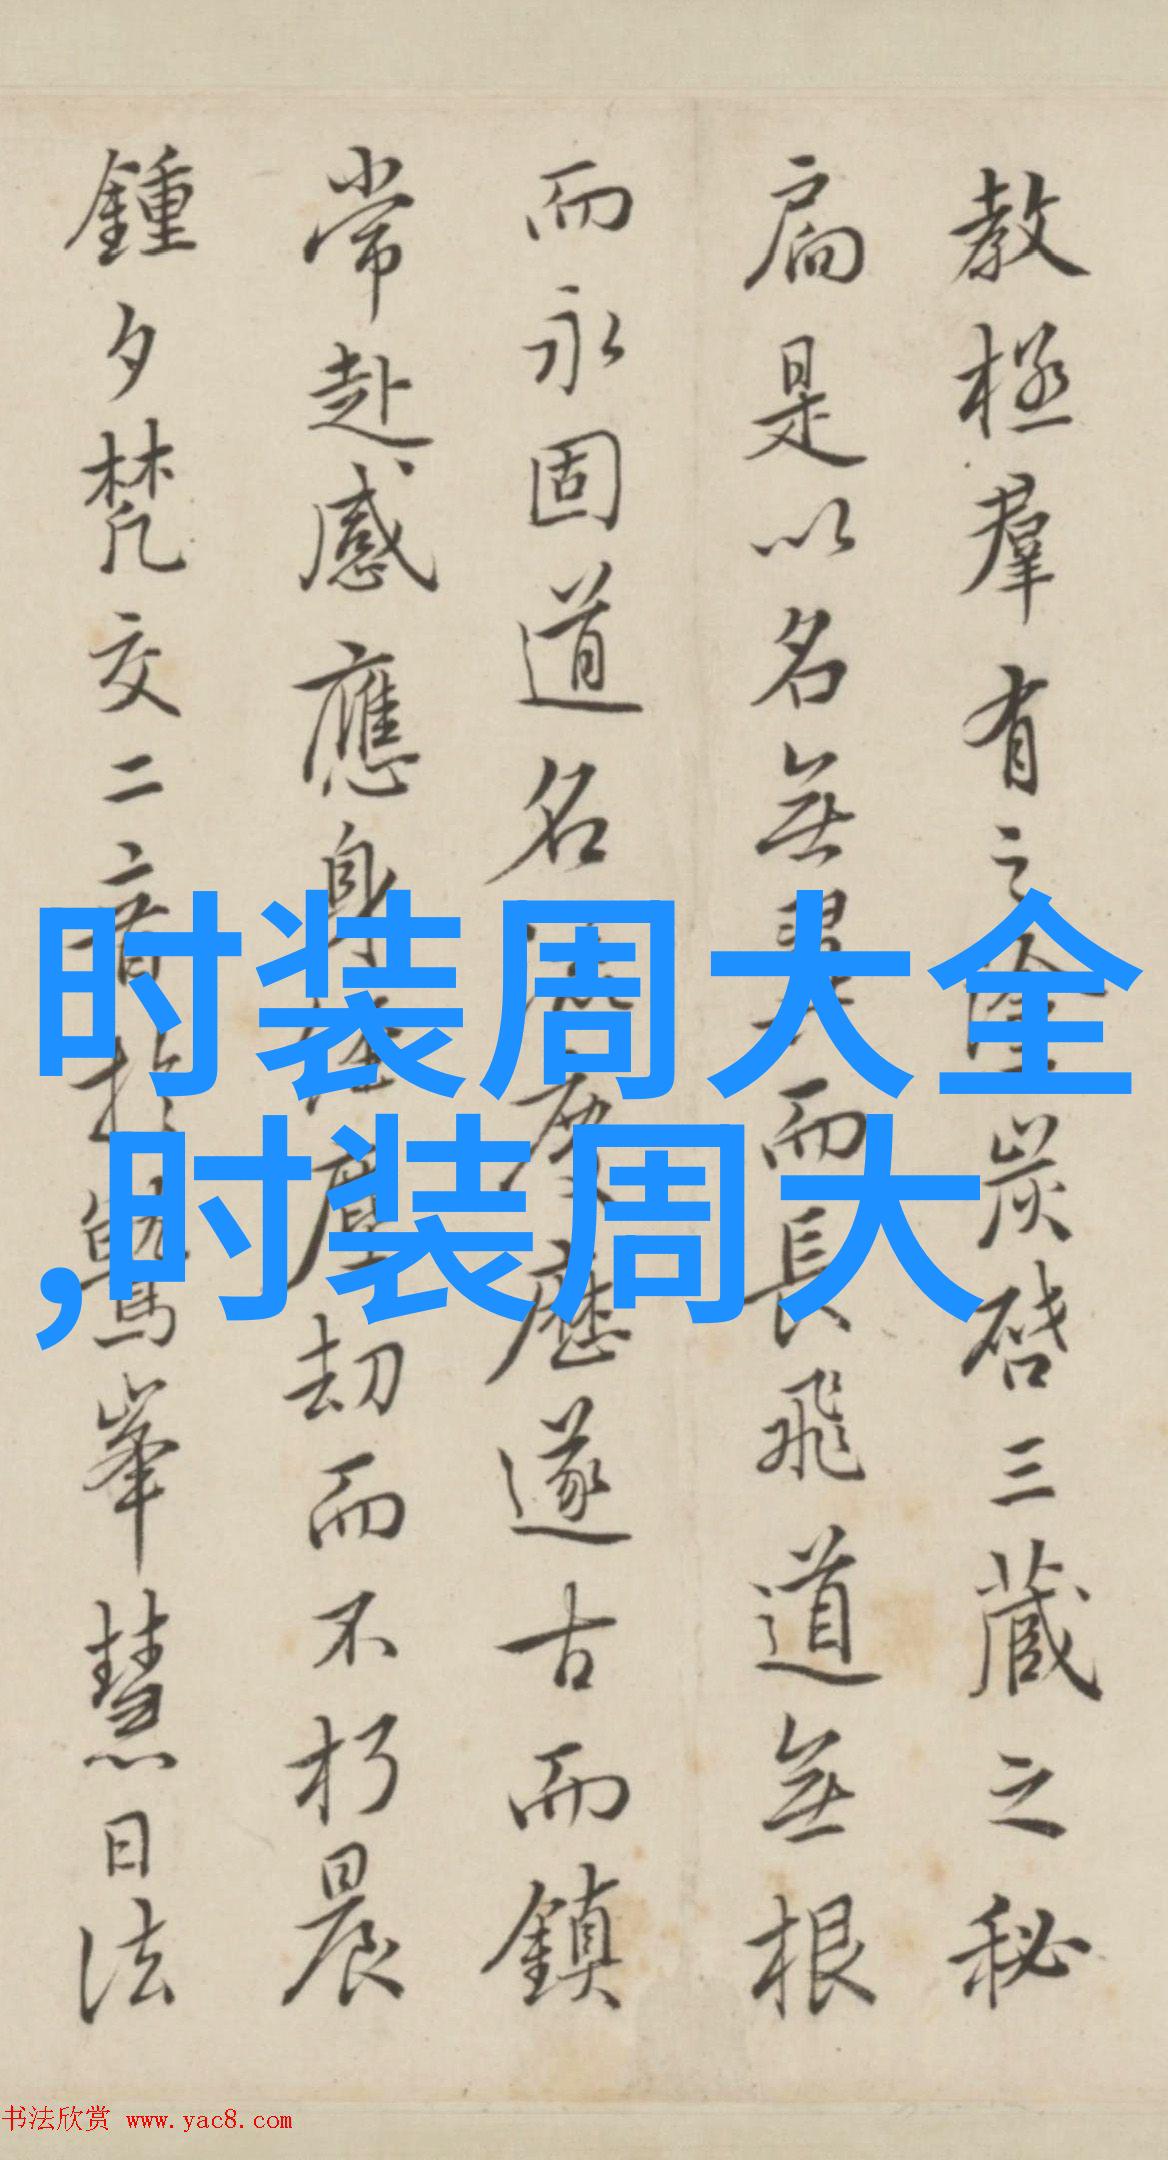 教極羣有之塗炭啓三藏之秘
扃是以名無翼而長飛道無根
而永固道名流慶歷遂古而鎮
常赴感應身經塵劫而不朽晨
鍾夕梵交二音於鷲峯慧日法
时装周大全
,时装周大
书法欣赏 www.yac8.com